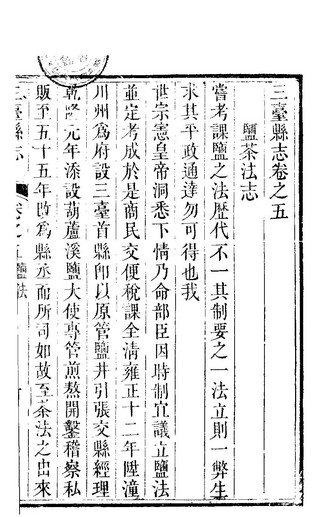 三臺縣志卷之五
鹽茶法志
嘗考課鹽之法歷代不一其制要之一法立則一弊生
求其平政通達勿可得也我
世宗憲皇帝洞悉下情乃命部臣因時制宜議立鹽法
並定考成於是商民交便稅課全清雍正十二年陞潼
川州爲府設三臺首縣卽以原管鹽井引張交縣經理
乾隆元年添設葫蘆溪鹽大使專管煎熬開鑿稽察私
販至五十五年改爲縣丞而所司如故至茶法之由來
三臺縣志 卷之五鹽法